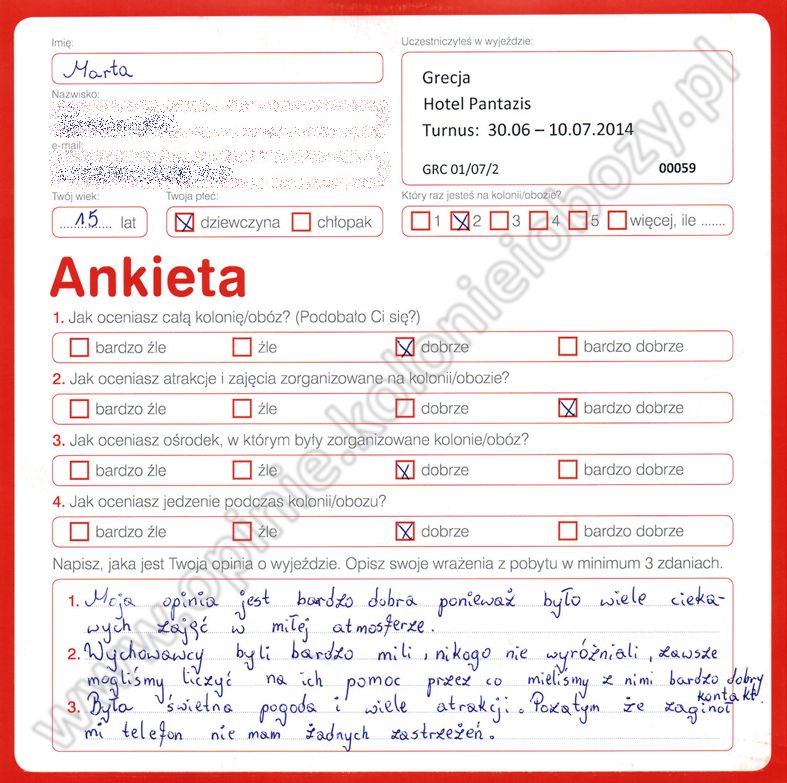 Imię:
Marta
Nazwisko:
e-mail:
Twój wiek:
15 lat
Twoja płeć:
dziewczyna chłopak
Uczestniczyłeś w wyjeździe:
Grecja
Hotel Pantazis
Turnus: 30.06 – 10.07.2014
GRC 01/07/2 00059
Który raz jesteś na kolonii/obozie?
1 2 3 4 5 więcej, ile .......
Ankieta
1. Jak oceniasz całą kolonię/obóz? (Podobało Ci się?)
bardzo źle źle dobrze bardzo dobrze
2. Jak oceniasz atrakcje i zajęcia zorganizowane na kolonii/obozie?
bardzo źle źle dobrze bardzo dobrze
3. Jak oceniasz ośrodek, w którym były zorganizowane kolonie/obóz?
bardzo źle źle dobrze bardzo dobrze
4. Jak oceniasz jedzenie podczas kolonii/obozu?
bardzo źle źle dobrze bardzo dobrze
Napisz, jaka jest Twoja opinia o wyjeździe. Opisz swoje wrażenia z pobytu w minimum 3 zdaniach.
1. Moja opinia jest bardzo dobra ponieważ było wiele cieka-
wych zajęć w miłej atmosferze.
2. Wychowawcy byli bardzo mili, nikogo nie wyróżniali, zawsze
mogliśmy liczyć na ich pomoc przez co mieliśmy z nimi bardzo dobry
kontakt.
3. Była świetna pogoda i wiele atrakcji. Pozatym że zaginoł
mi telefon nie mam żadnych zastrzeżeń.
www.opinie.kolonieiobozy.pl